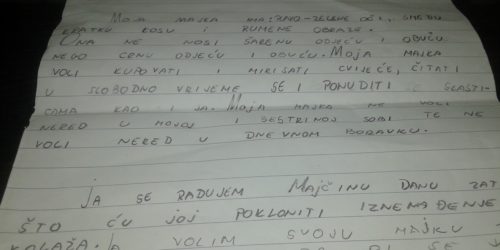 MOJA MAJKA IMA PLAVO-ZELENE OČI, SMEĐU
KRATKU KOSU I RUMENE OBRAZE.
ONA NE NOSI ŠARENU ODJEĆU I OBUĆU
NEGO CRNU ODJEĆU I OBUĆU. MOJA MAJKA
VOLI KUPOVATI I MIRISATI CVIJEĆE, ČITATI
U SLOBODNO VRIJEME SE I PONUDITI SLASTI-
CAMA KAO I JA. MOJA MAJKA NE VOLI
NERED U MOJOJ I SESTRINOJ SOBI TE NE
VOLI NERED U DNEVNOM BORAVKU.
JA SE RADUJEM MAJČINU DANU ZAT
ŠTO ĆU JOJ POKLONITI IZNENAĐENJE
KOLAŽA. JA VOLIM SVOJU MAJKU